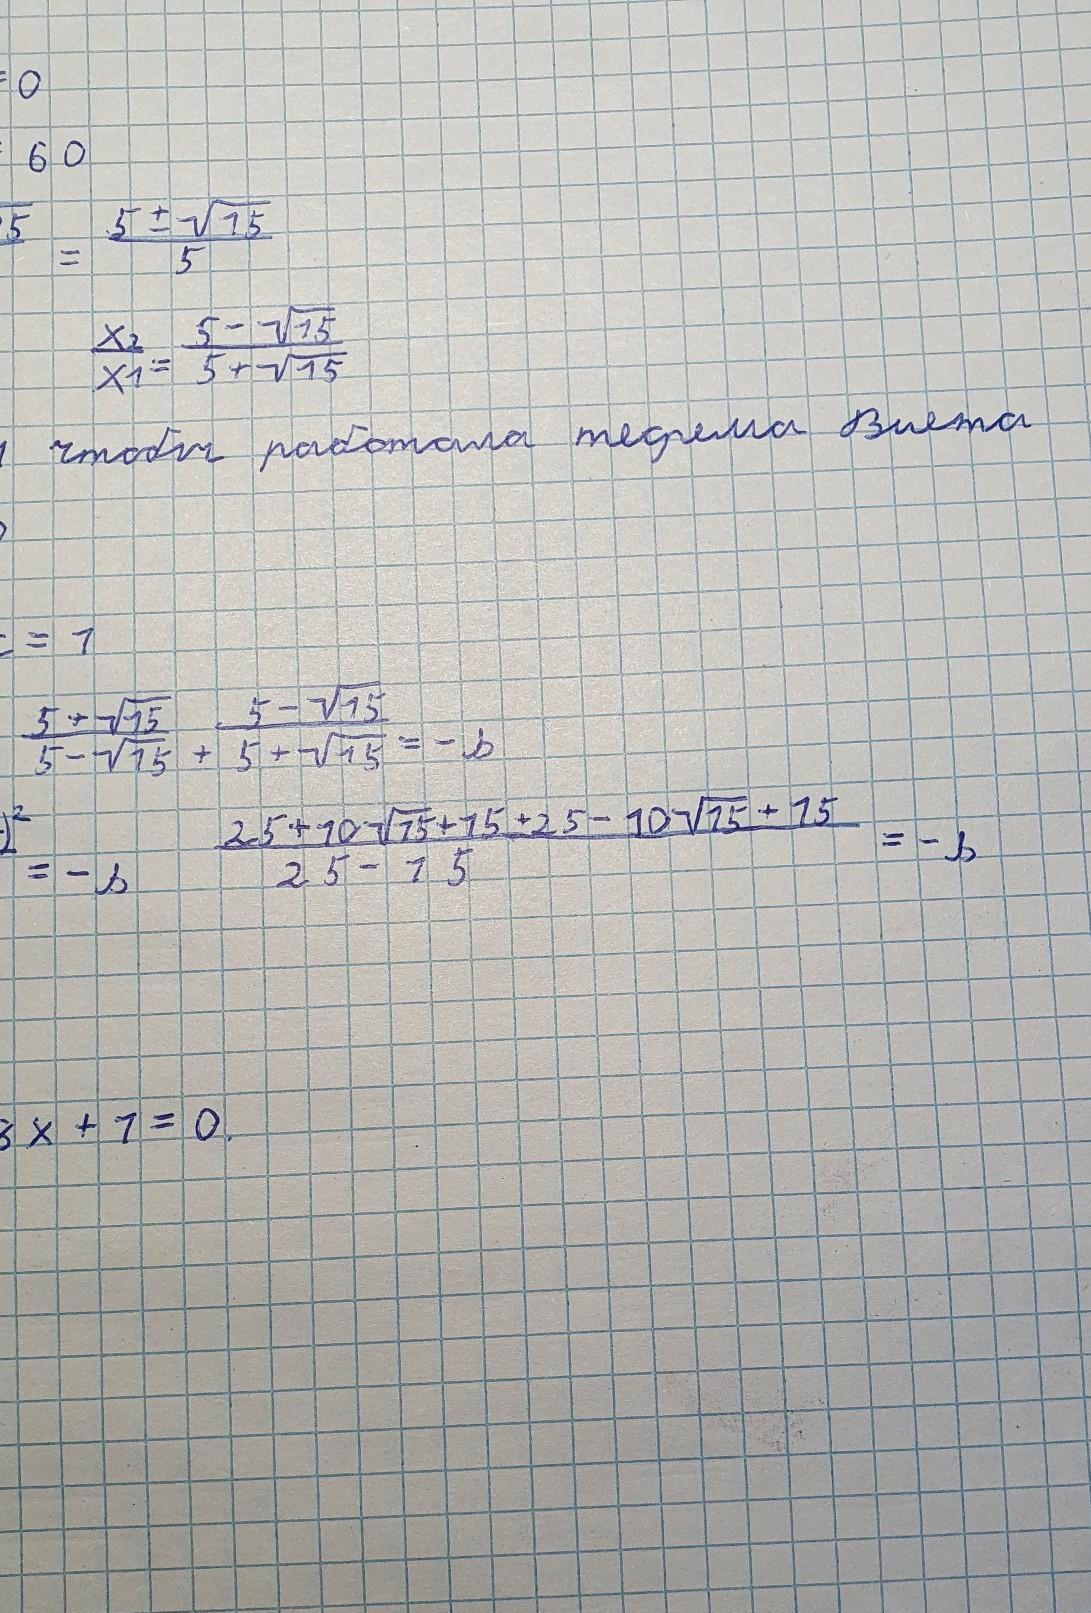 =0
= 60
5 = 5 ± √15 / 5
x2 / x1 = 5 - √15 / 5 + √15
чтобы работала теорема Виета
= 1
5 + √15 / 5 - √15 + 5 - √15 / 5 + √15 = - b
)² = - b 25 + 10√15 + 15 + 25 - 10√15 + 15 / 25 - 15 = - b
8 x + 1 = 0.